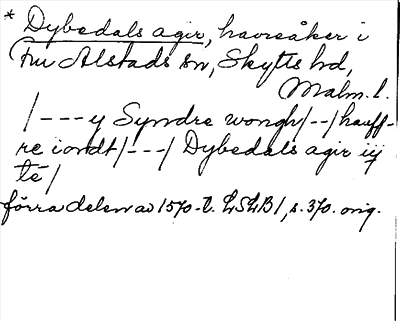 * Dybedals agir, havreåker i
Fru Alstads sn, Skytts hd,
Malm. l.
/---y Syndre wongh/--/hauff-
re iondt/---/ Dybedals agir iij
te/
förra delen av 1570-t. LSLB 1, s. 370. orig.